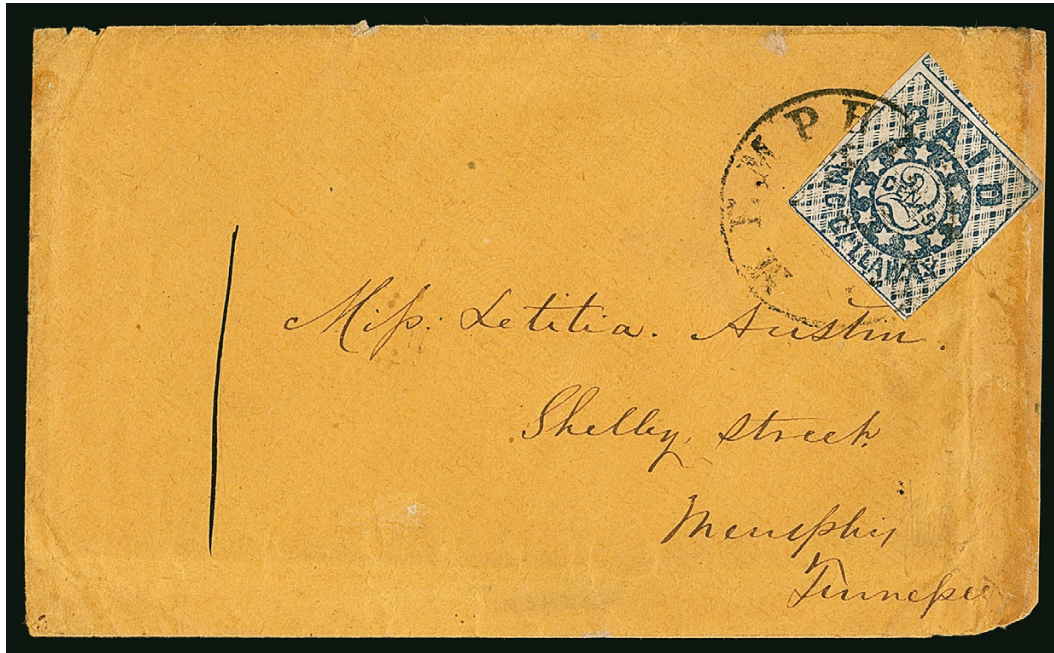 MEMPHIS
PAID
2
CENTS
M.C. CALLAWAY
Miss. Letitia. Austin.
Shelby, street.
Memphis
Tennessee